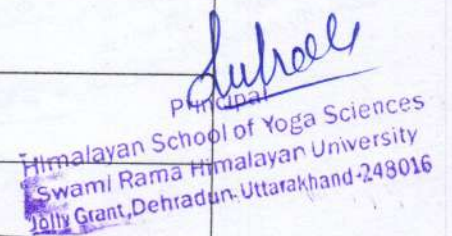 Principal
Himalayan School of Yoga Sciences
Swami Rama Himalayan University
Jolly Grant, Dehradun-Uttarakhand-248016